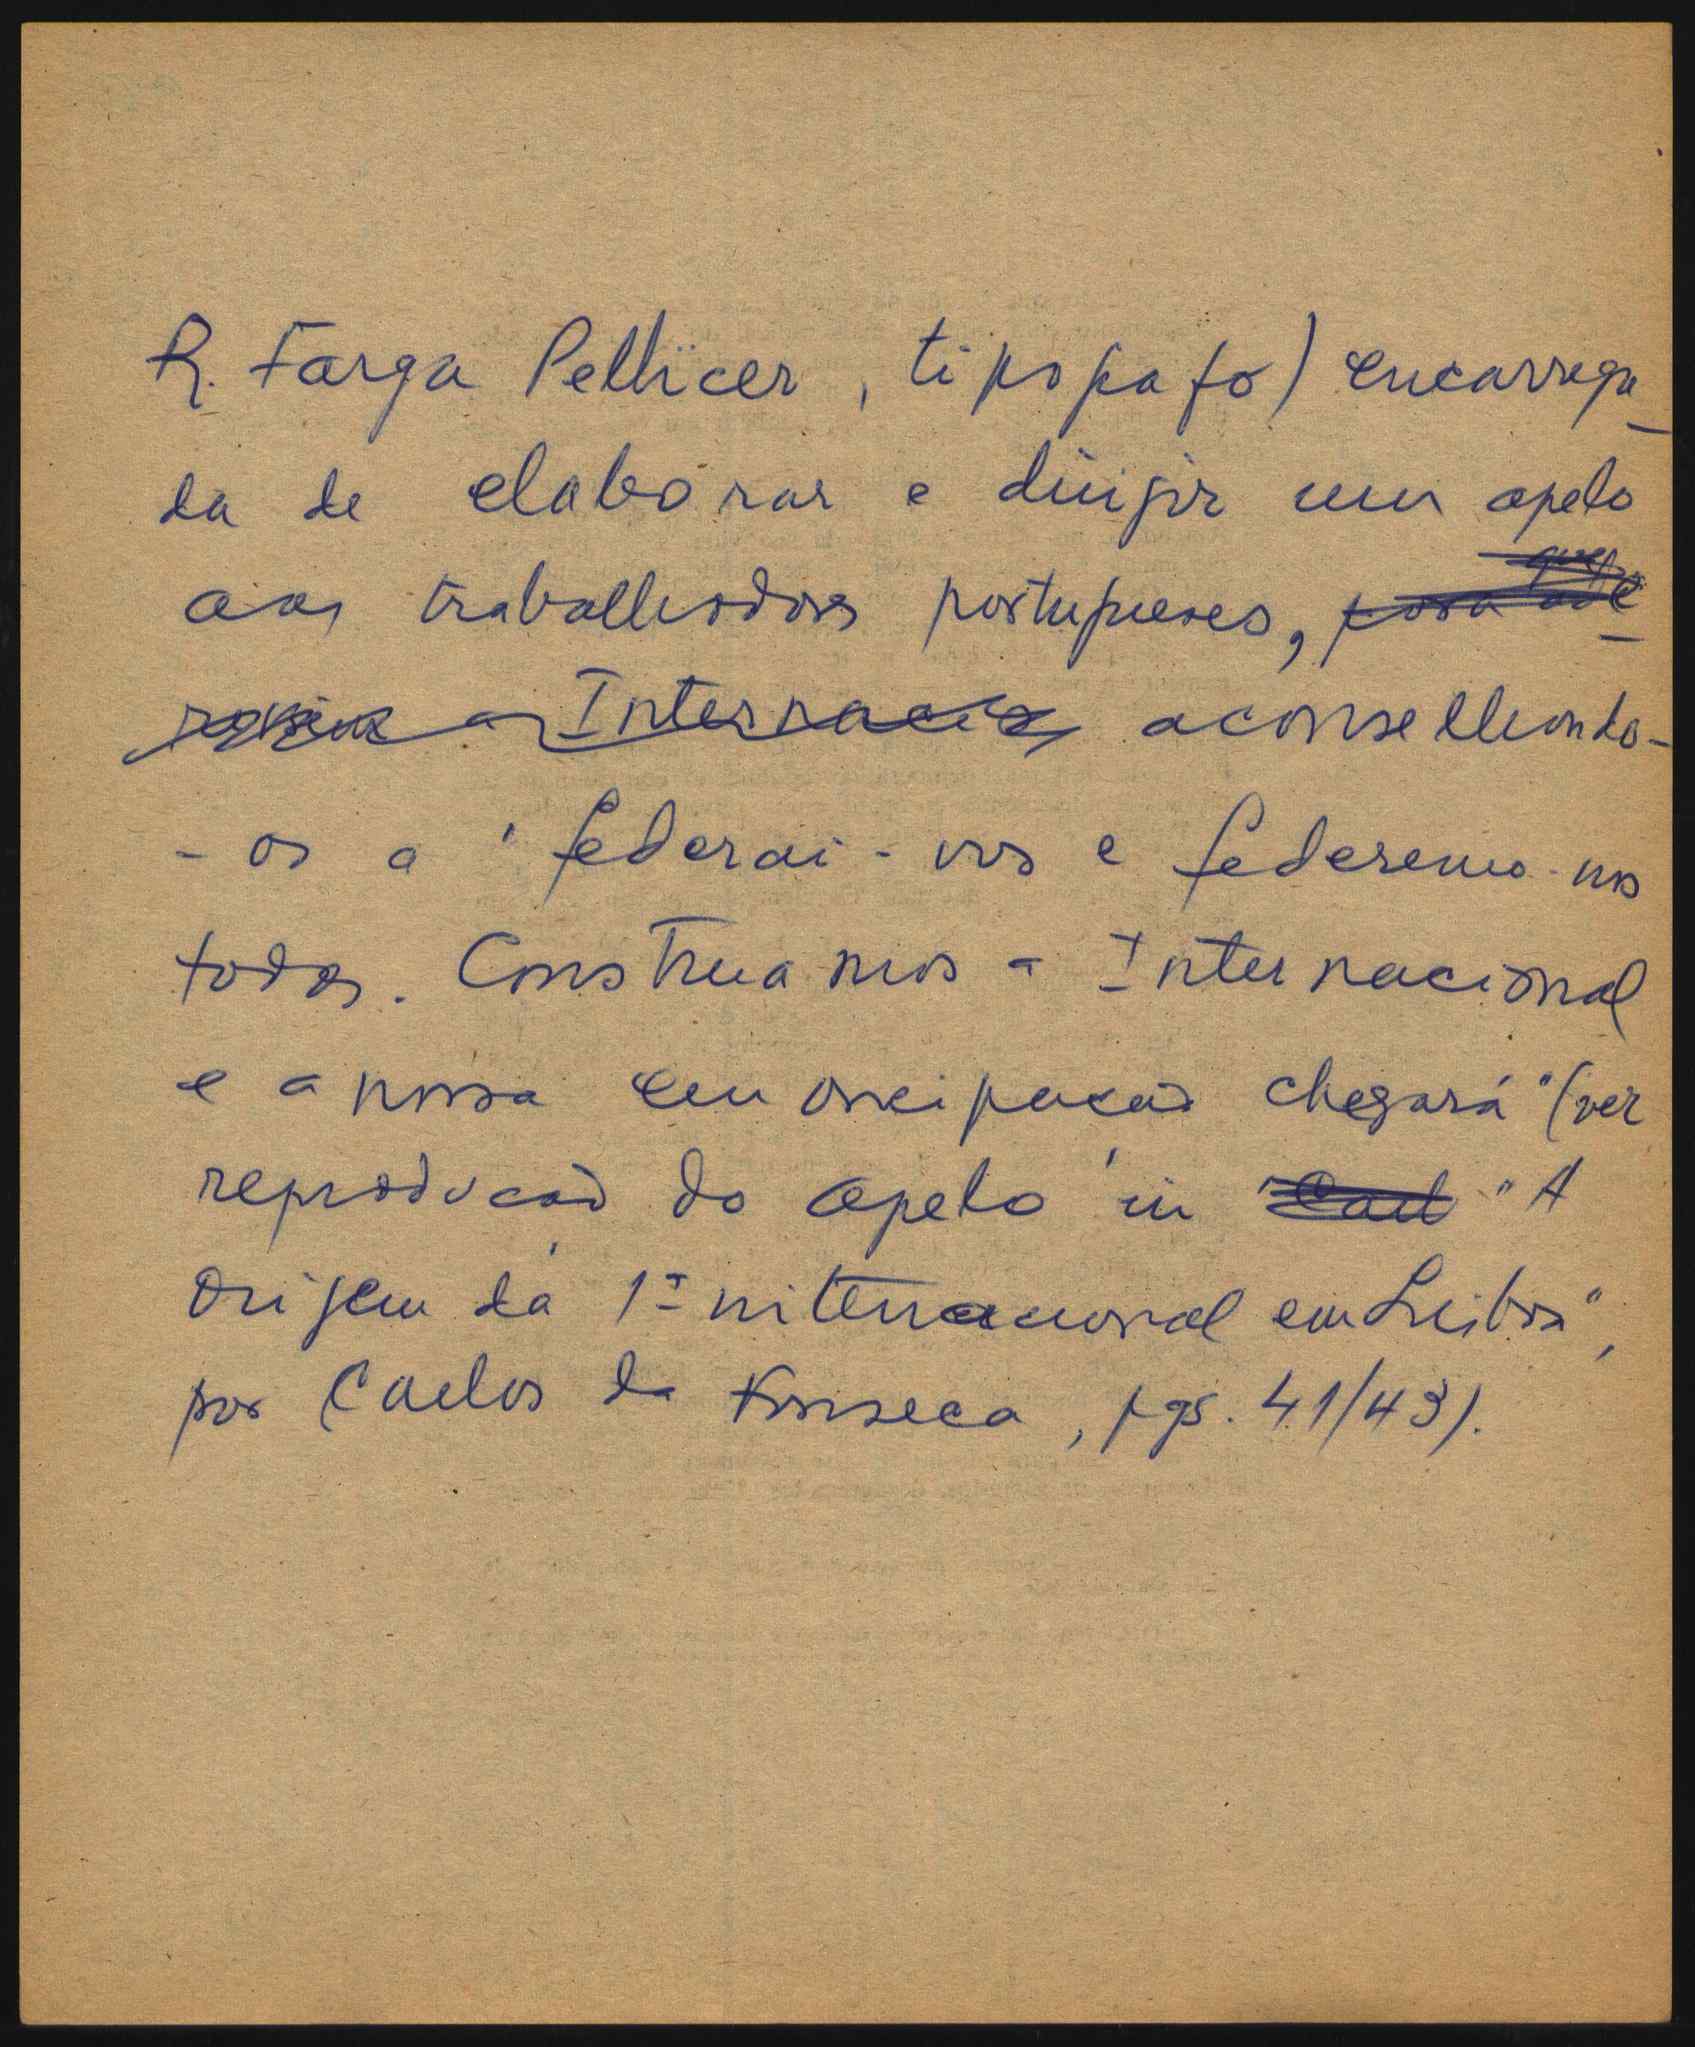 R. Farga Pellicer, tipografo) encarrega-
da de elaborar e dirigir um apelo
aos trabalhadores portugueses, para que
a Internacio aconselhando-
-os a "federai-vos e federemo-nos
todos. Construamos a Internacional
e a nossa emancipação chegará" (ver
reprodução do apelo in "Carl "A
Origem da 1ª internacional em Lisboa",
por Carlos da Fonseca, pgs. 41/43).